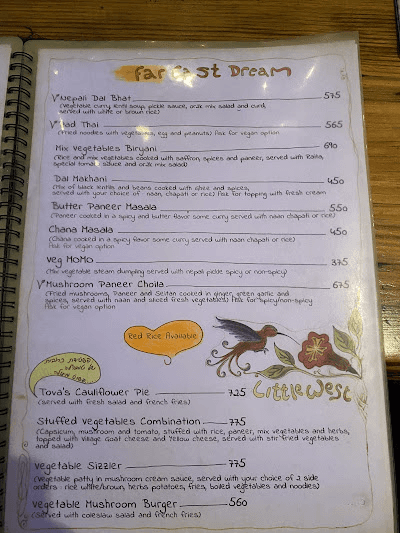 Far East Dream
Nepali Dal Bhat 575
(Vegetable curry, lentil soup, pickle sauce, or.& mix salad and curd,
served with white or brown rice)
Pad Thai 565
(Fried noodles with vegetables, egg and peanuts) Ask for vegan option
Mix Vegetables Biryani 690
(Rice and mix vegetables cooked with saffron, spices and paneer, served with Raita,
special tomato sauce and or.& mix salad)
Dal Makhani 450
(Mix of black lentils and beans cooked with ghee and spices,
served with your choice of naan, chapati or rice) Ask for topping with fresh cream
Butter Paneer Masala 550
(Paneer cooked in a spicy and butter flavor some curry served with naan chapati or rice)
Chana Masala 450
(Chana cooked in a spicy flavor some curry served with naan chapati or rice)
Ask for vegan option
Veg MOMO 375
(Mix vegetable steam dumpling served with nepali pickle spicy or non-spicy)
Mushroom Paneer Choila 675
(Fried mushrooms, Paneer and Seitan cooked in ginger, green garlic and
spices, served with naan and sliced fresh vegetables) Ask for spicy/non-spicy
Ask for vegan option
Red Rice Available
Little West
Tova's Cauliflower Pie 725
(served with fresh salad and french fries)
Stuffed Vegetables Combination 775
(Capsicum, mushroom and tomato, stuffed with rice, paneer, mix vegetables and herbs,
topped with Village Goat cheese and Yellow cheese, served with stir fried vegetables
and salad)
Vegetable Sizzler 775
(Vegetable patty in mushroom cream sauce, served with your choice of 2 side
orders : rice white/brown, herbs potatoes, fries, boiled vegetables and noodles)
Vegetable Mushroom Burger 560
(Served with coleslaw salad and french fries)